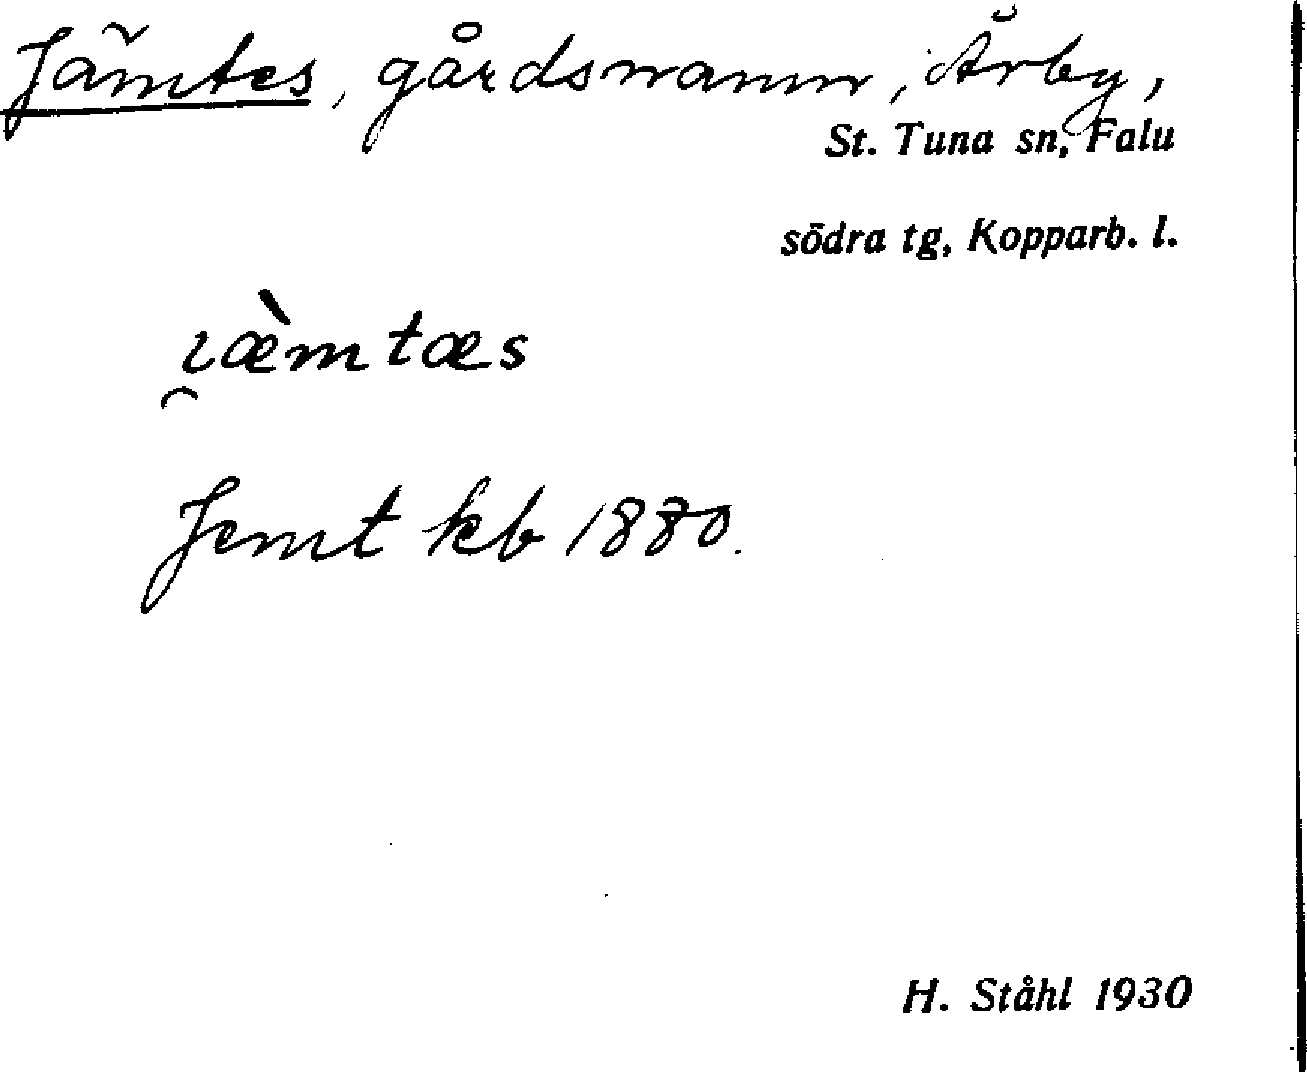 Jämtes, gårdsnamn, Ärby,
St. Tuna sn, Falu
södra tg, Kopparb. l.
i̯æ̀mtæs
Jemt kb 1880.
H. Ståhl 1930